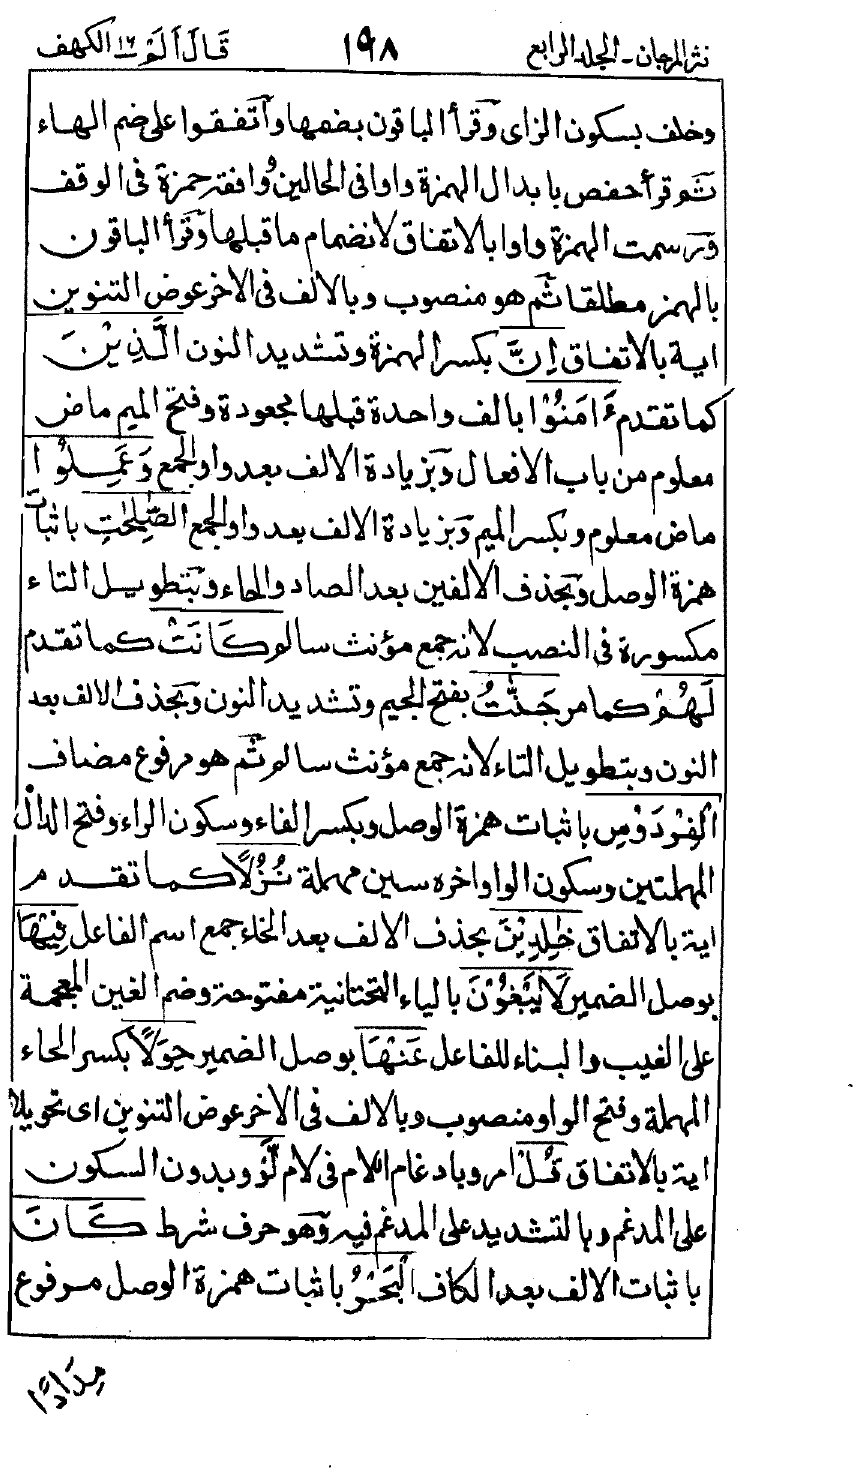 نثر المرجان - المجلد الرابع ١٩٨ قَالَ اَلَمْ ١٦ الكهف
وخلف بسكون الزاى وَقرأ الباقون بضمها وَاتفقوا على ضم الهاء
ثم وقرأ حفص بابدال الهمزة واوا فى الحالين وافقه حمزة فى الوقف
ورسمت الهمزة واوا بالاتفاق لانضمام ما قبلها وَقرأ الباقون
بالهمز مطلقا ثم هو منصوب وبالالف فى الاخر عوض التنوين
اية بالاتفاق اِنَّ بكسر الهمزة وتشديد النون الَّذِيْنَ
كما تقدم ءَامَنُوْا بالف واحدة قبلها مجعودة وفتح الميم ماض
معلوم من باب الافعال وَبزيادة الالف بعد واو الجمع وَعَمِلُوا
ماض معلوم وبكسر الميم وَبزيادة الالف بعد واو الجمع الصّٰلِحٰتِ باثبات
همزة الوصل وَبحذف الالفين بعد الصاد والحاء وَبتطويل التاء
مكسورة فى النصب لانه جمع مؤنث سالم كَانَتْ كما تقدم
لَهُمْ كما مر جَنّٰتُ بفتح الجيم وتشديد النون وَبحذف الالف بعد
النون وبتطويل التاء لانه جمع مؤنث سالم ثم هو مرفوع مضاف
الْفِرْدَوْسِ باثبات همزة الوصل وبكسر الفاء وسكون الراء وفتح الدال
المهملتين وسكون الواو اخره سين مهملة نُزُلًا كما تقدم
اية بالاتفاق خٰلِدِيْنَ بحذف الالف بعد الخاء جمع اسم الفاعل فِيْهَا
بوصل الضمير لَا يَبْغُوْنَ بالياء التحتانية مفتوحة وضم الغين المعجمة
على الغيب والبناء للفاعل عَنْهَا بوصل الضمير حِوَلًا بكسر الحاء
المهملة وفتح الواو منصوب وبالالف فى الاخر عوض التنوين اى تحويلا
اية بالاتفاق قُلْ امر وبادغام اللام فى لام لَّوْ وبدون السكون
على المدغم وبالتشديد على المدغم فيه وَهو حرف شرط كَانَ
باثبات الالف بعد الكاف الْبَحْرُ باثبات همزة الوصل مرفوع
مِدَادًا